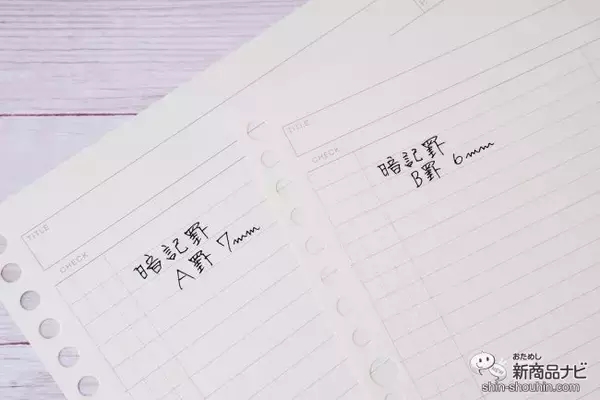 TITLE
CHECK
暗記罫
A罫 7mm
TITLE
CHECK
暗記罫
B罫 6mm
おためし
新商品ナビ
shin-shouhin.com